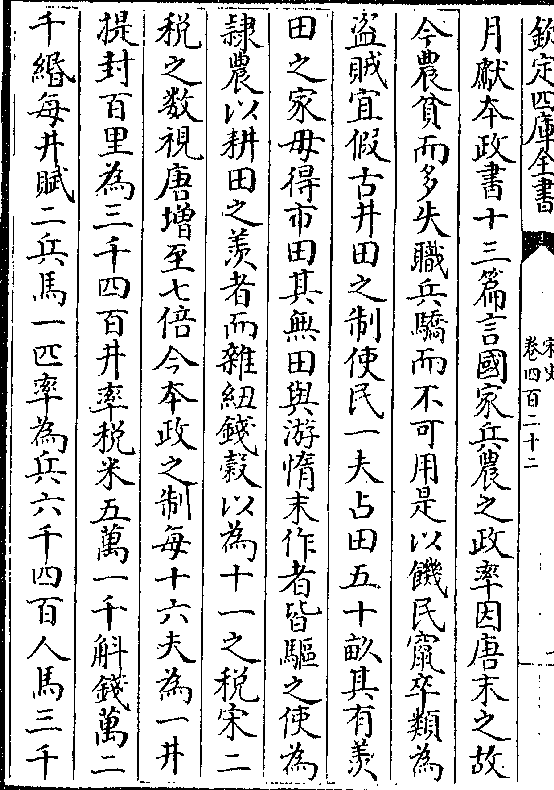 欽定四庫全書
宋史
卷四百二十二
月獻本政書十三篇言國家兵農之政率因唐末之故
今農貧而多失職兵驕而不可用是以饑民竄卒類為
盗賊宜假古井田之制使民一夫占田五十畝其有羨
田之家毋得市田其無田與游惰末作者皆驅之使為
隷農以耕田之羨者而雜紐錢穀以為十一之税宋二
税之數視唐增至七倍今本政之制每十六夫為一井
提封百里為三千四百井率税米五萬一千斛錢萬二
千緡每井賦二兵馬一匹率為兵六千四百人馬三千